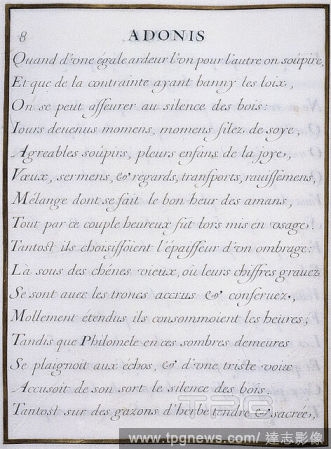 8
ADONIS
Quand d'vne égale ardeur l'on pour l'autre on soúpire,
Et que de la contrainte ayant banny les loix,
On se peut asseurer au silence des bois:
Iours deuenus momens, momens filez de soye,
Agreables soúpirs, pleurs enfans de la joye,
Vœux, sermens, & regards, transports, rauissémens,
Mélange dont se fait le bon heur des amans,
Tout par ce couple heureux fut lors mis en vsage:
Tantost ils choisissoient l'épaisseur d'vn ombrage:
Là sous des chénes vieux, ou leurs chiffres grauez
Se sont auec les troncs accrus & conseruez,
Mollement etendus ils consommoient les heures;
Tandis que Philomele en ces sombres demeures
Se plaignoit aux échos, & d'vne triste voix
Accusoit de son sort le silence des bois,
Tantost sur des gazons d'herbe tendre & sacrée,
www.tpgnews.com / 達志影像